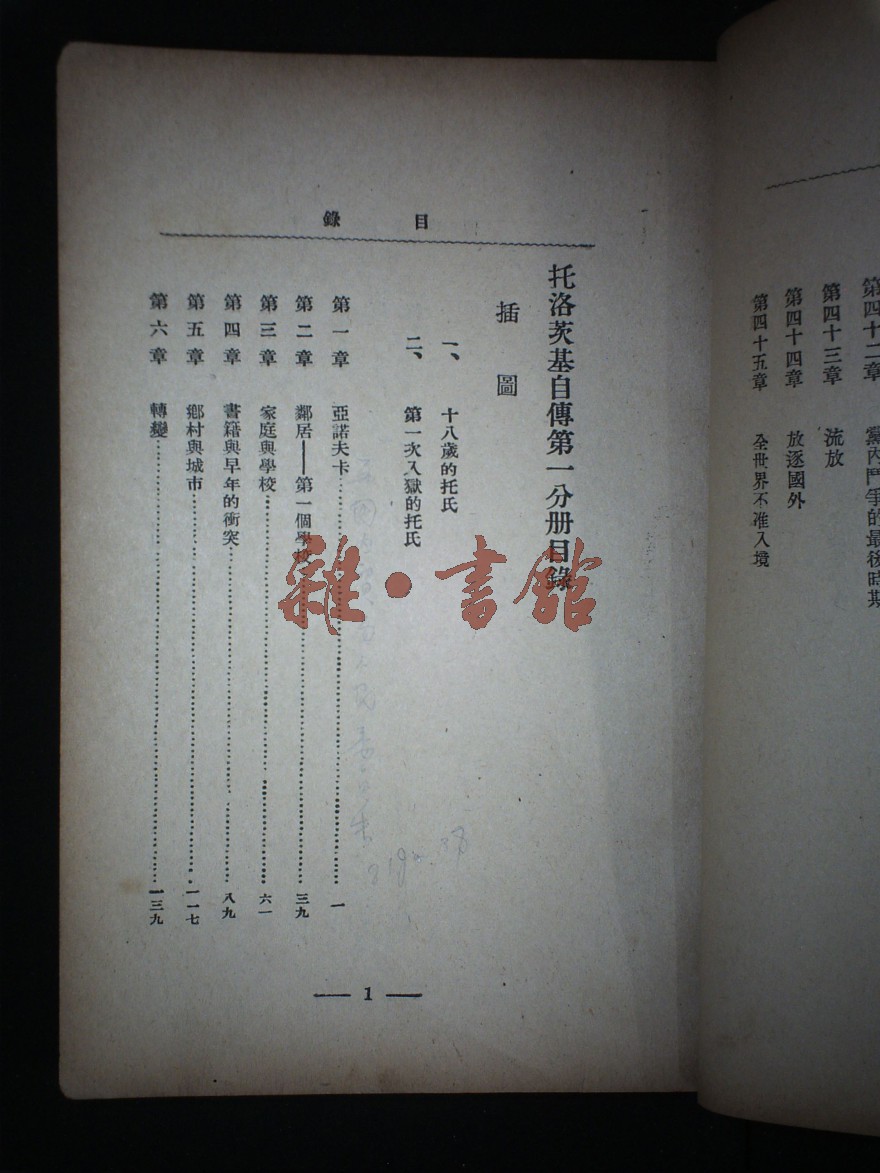 第四十二章 黨內鬥爭的最後時期
第四十三章 流放
第四十四章 放逐國外
第四十五章 全世界不准入境
目錄
托洛茨基自傳第一分册目錄
插圖
一、十八歲的托氏
二、第一次入獄的托氏
第一章 亞諾夫卡……一
第二章 鄰居——第一個學校……三九
第三章 家庭與學校……六一
第四章 書籍與早年的衝突……八九
第五章 鄉村與城市……一一七
第六章 轉變……一三九
— 1 —
雜·書館